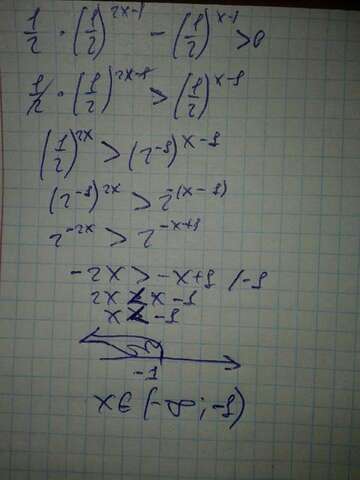 1/2 · (1/2)^(2x-1) - (1/2)^(x-1) > 0
1/2 · (1/2)^(2x-1) > (1/2)^(x-1)
(1/2)^(2x) > (2^(-1))^(x-1)
(2^(-1))^(2x) > 2^(-(x-1))
2^(-2x) > 2^(-x+1)
-2x > -x+1 /-1
2x < x -1
x < -1
-1
x∈ (-∞; -1)